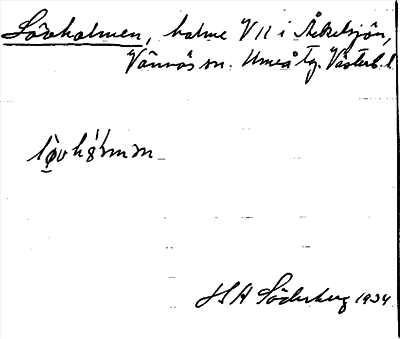 Lövholmen, holme V11 i Åkelsjön,
Vännäs sn. Umeå tg. Västerb. l.
H A Söderberg 1934